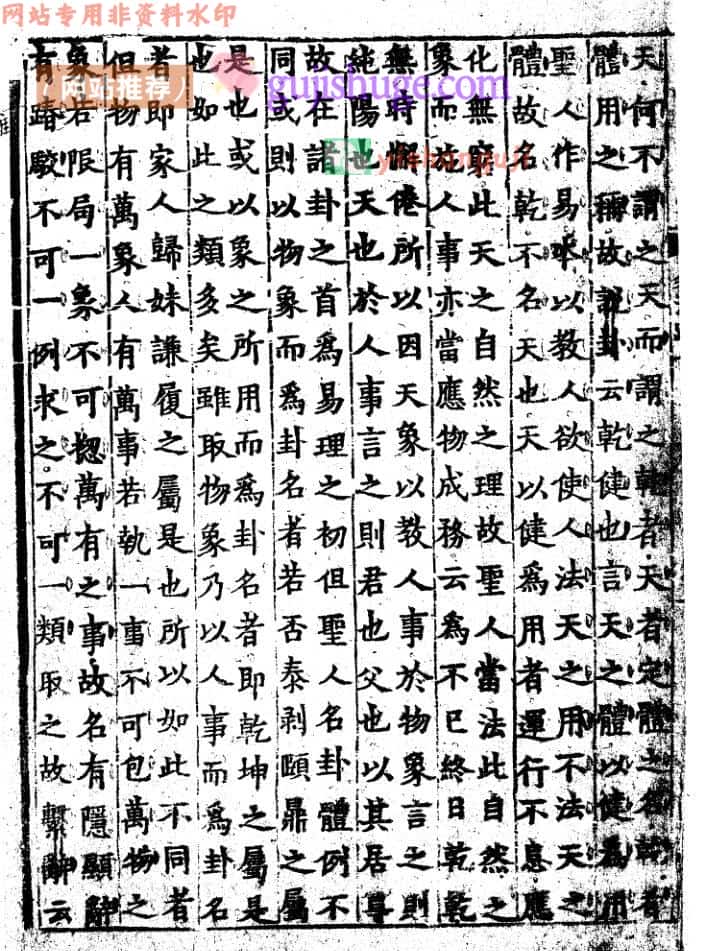 网站专用非资料水印
天何不謂之天而謂之乾者天者定體之名乾者
體用之稱故說卦云乾健也言天之體以健爲用
聖人作易本以教人欲使人法天之用不法天之
體故名乾不名天也天以健爲用者運行不息應
化無窮此天之自然之理故聖人當法此自然之
象而施人事亦當應物成務云爲不已終日乾乾
無時懈倦所以因天象以教人事於物象言之則
純陽也天也於人事言之則君也父也以其居尊
故在諸卦之首爲易理之初但聖人名卦體例不
同或則以物象而爲卦名者若否泰剝頤鼎之屬
是也或以象之所用而爲卦名者即乾坤之屬是
也如此之類多矣雖取物象乃以人事而爲卦名
者即家人歸妹謙履之屬是也所以如此不同者
但物有萬象人有萬事若執一事不可包萬物之
象若限局一象不可揔萬有之事故名有隱顯辭
有踳駮不可一例求之不可一類取之故繫辭云
网站推荐
gujishuge.com
yishanguji